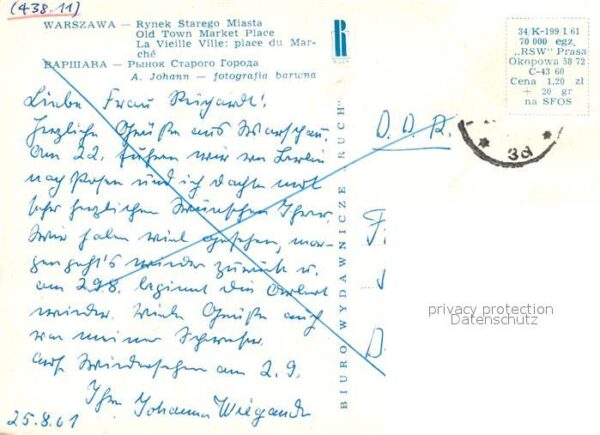 (438.11)
WARSZAWA — Rynek Starego Miasta
Old Town Market Place
La Vieille Ville: place du Mar-
ché
ВАРШАВА — Рынок Старого Города
A. Johann — fotografia barwna
R
RUCH
34/K-199 I.61
70 000 egz.
„RSW" Prasa
Okopowa 58/72
C-43 60
Cena 1,20 zł
+ 20 gr
na SFOS
3d
BIURO WYDAWNICZE „RUCH"
Liebe Frau
herzliche Grüße aus Warschau.
Am 22. fuhren wir von Berlin
nach Posen und ich dachte mit
sehr herzlichen Wünschen Ihrer.
Wir haben viel gesehen, mor-
gen geht's wieder zurück u.
am 29.8. beginnt die Arbeit
wieder. Viele Grüße auch
von meiner Schwester.
Auf Wiedersehen am 2.9.
Ihre Johanna Wiegand
25.8.61
D.D.R.
F
D
privacy protection
Datenschutz